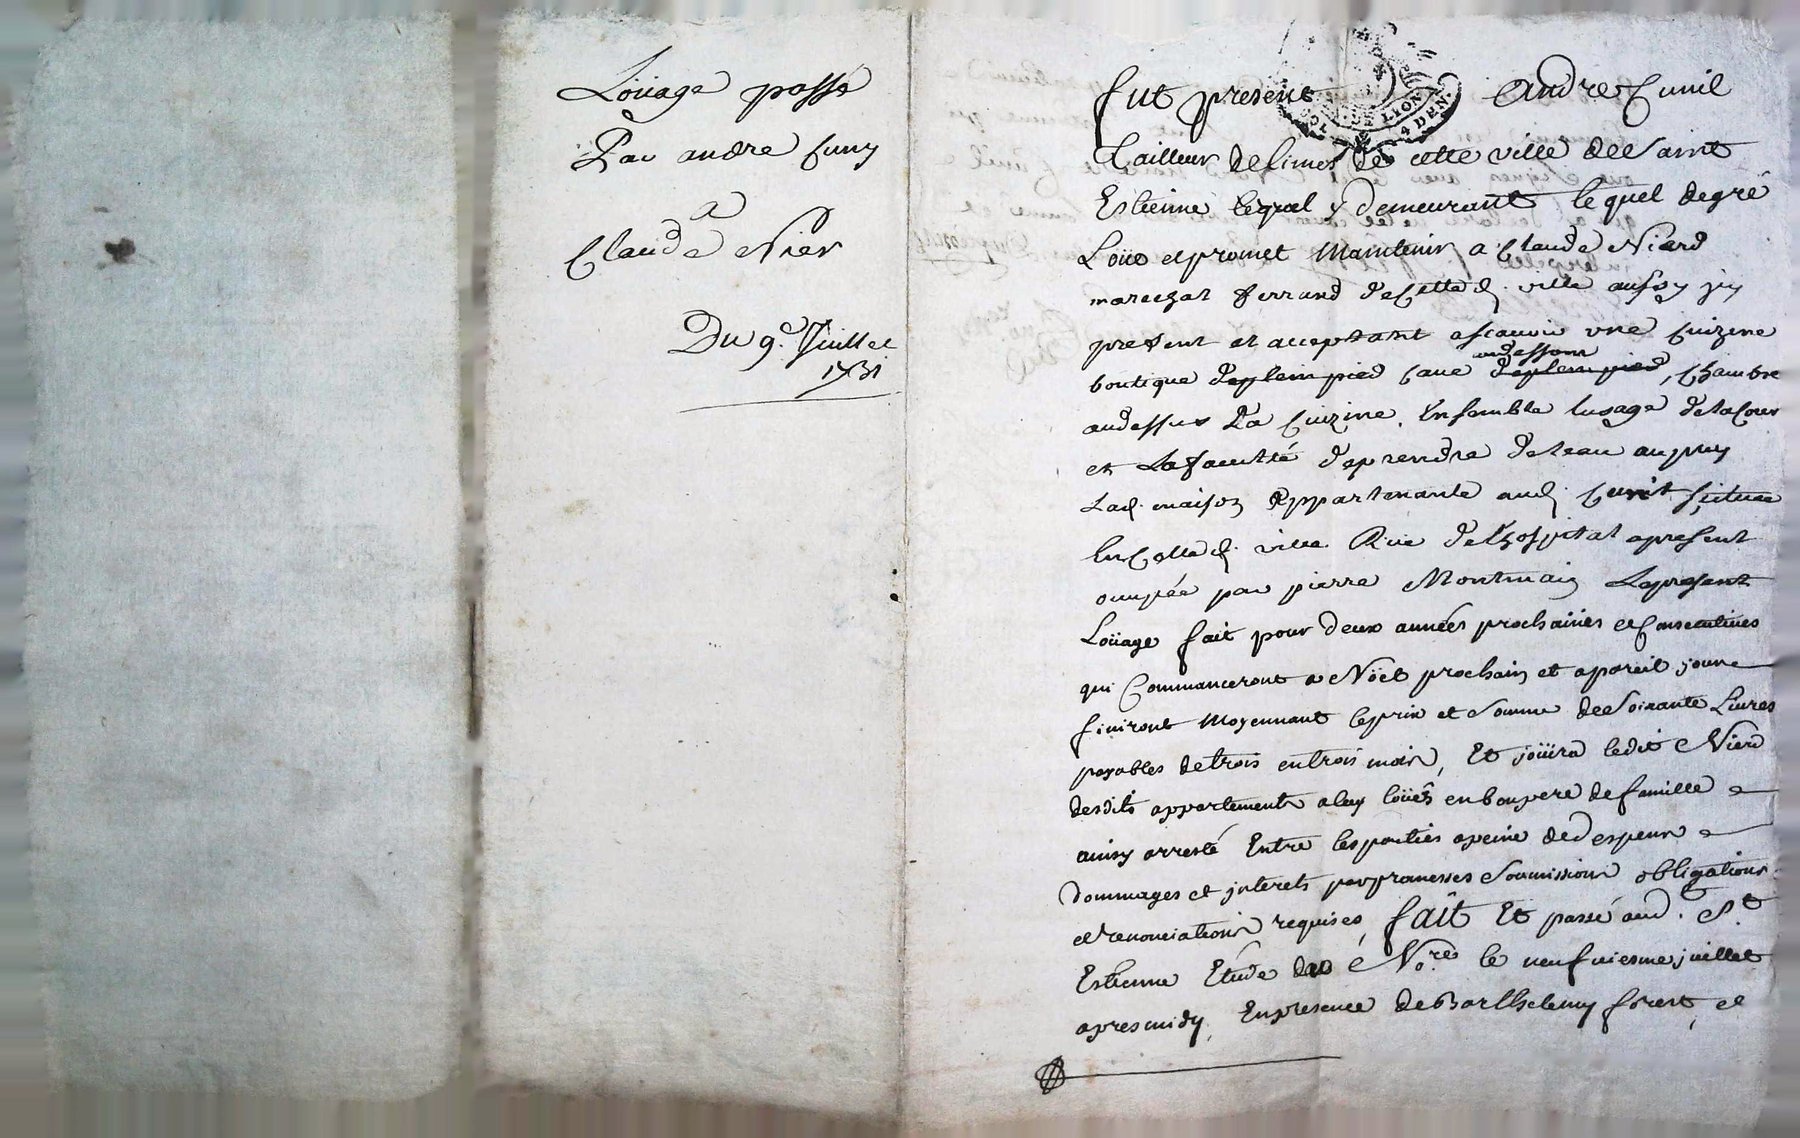 Loüage passé
Par andre Cuny
a
Claude Nier
Du 9e. Juillet
1731
fut present andre Cunil
tailleur de limes de cette ville de Saint
Estienne y demeurant lequel de gré
Loüe et promet Maintenir a Claude Nierd
marechal ferrand de Cette d. ville aussy jcy
present et acceptant ascavoir une Cuizine
boutique deplein pied Cave audessous deplein pied, Chambre
audessus La Cuizine, Ensemble lusage de la Cour
et La faculté de prendre de leau au puy
Lad. maison appartenante aud. Cunit scituee
En Cette d. ville Rue de Lhospital apresent
occupée par pierre Montmain Lepresent
Loüage fait pour deux années prochaines et Consecutives
qui Commanceront a Nöel prochain et apareil jour
finiront Moyennant leprix et Somme de Soixante Livres
payables de trois en trois mois, Et joüira ledit Nierd
desdits appartements a luy loüés en bon pere de famille
ainsy arresté Entre les parties apeine de despens
dommages et jnterets par promesses Soumissions obligations
et renonciations requises, fait Et passé aud. St.
Estienne Etude du Nore. le neufviesme juillet
apres midy, En presence de Barthelemy forest, et
DE LION
4 DEN.